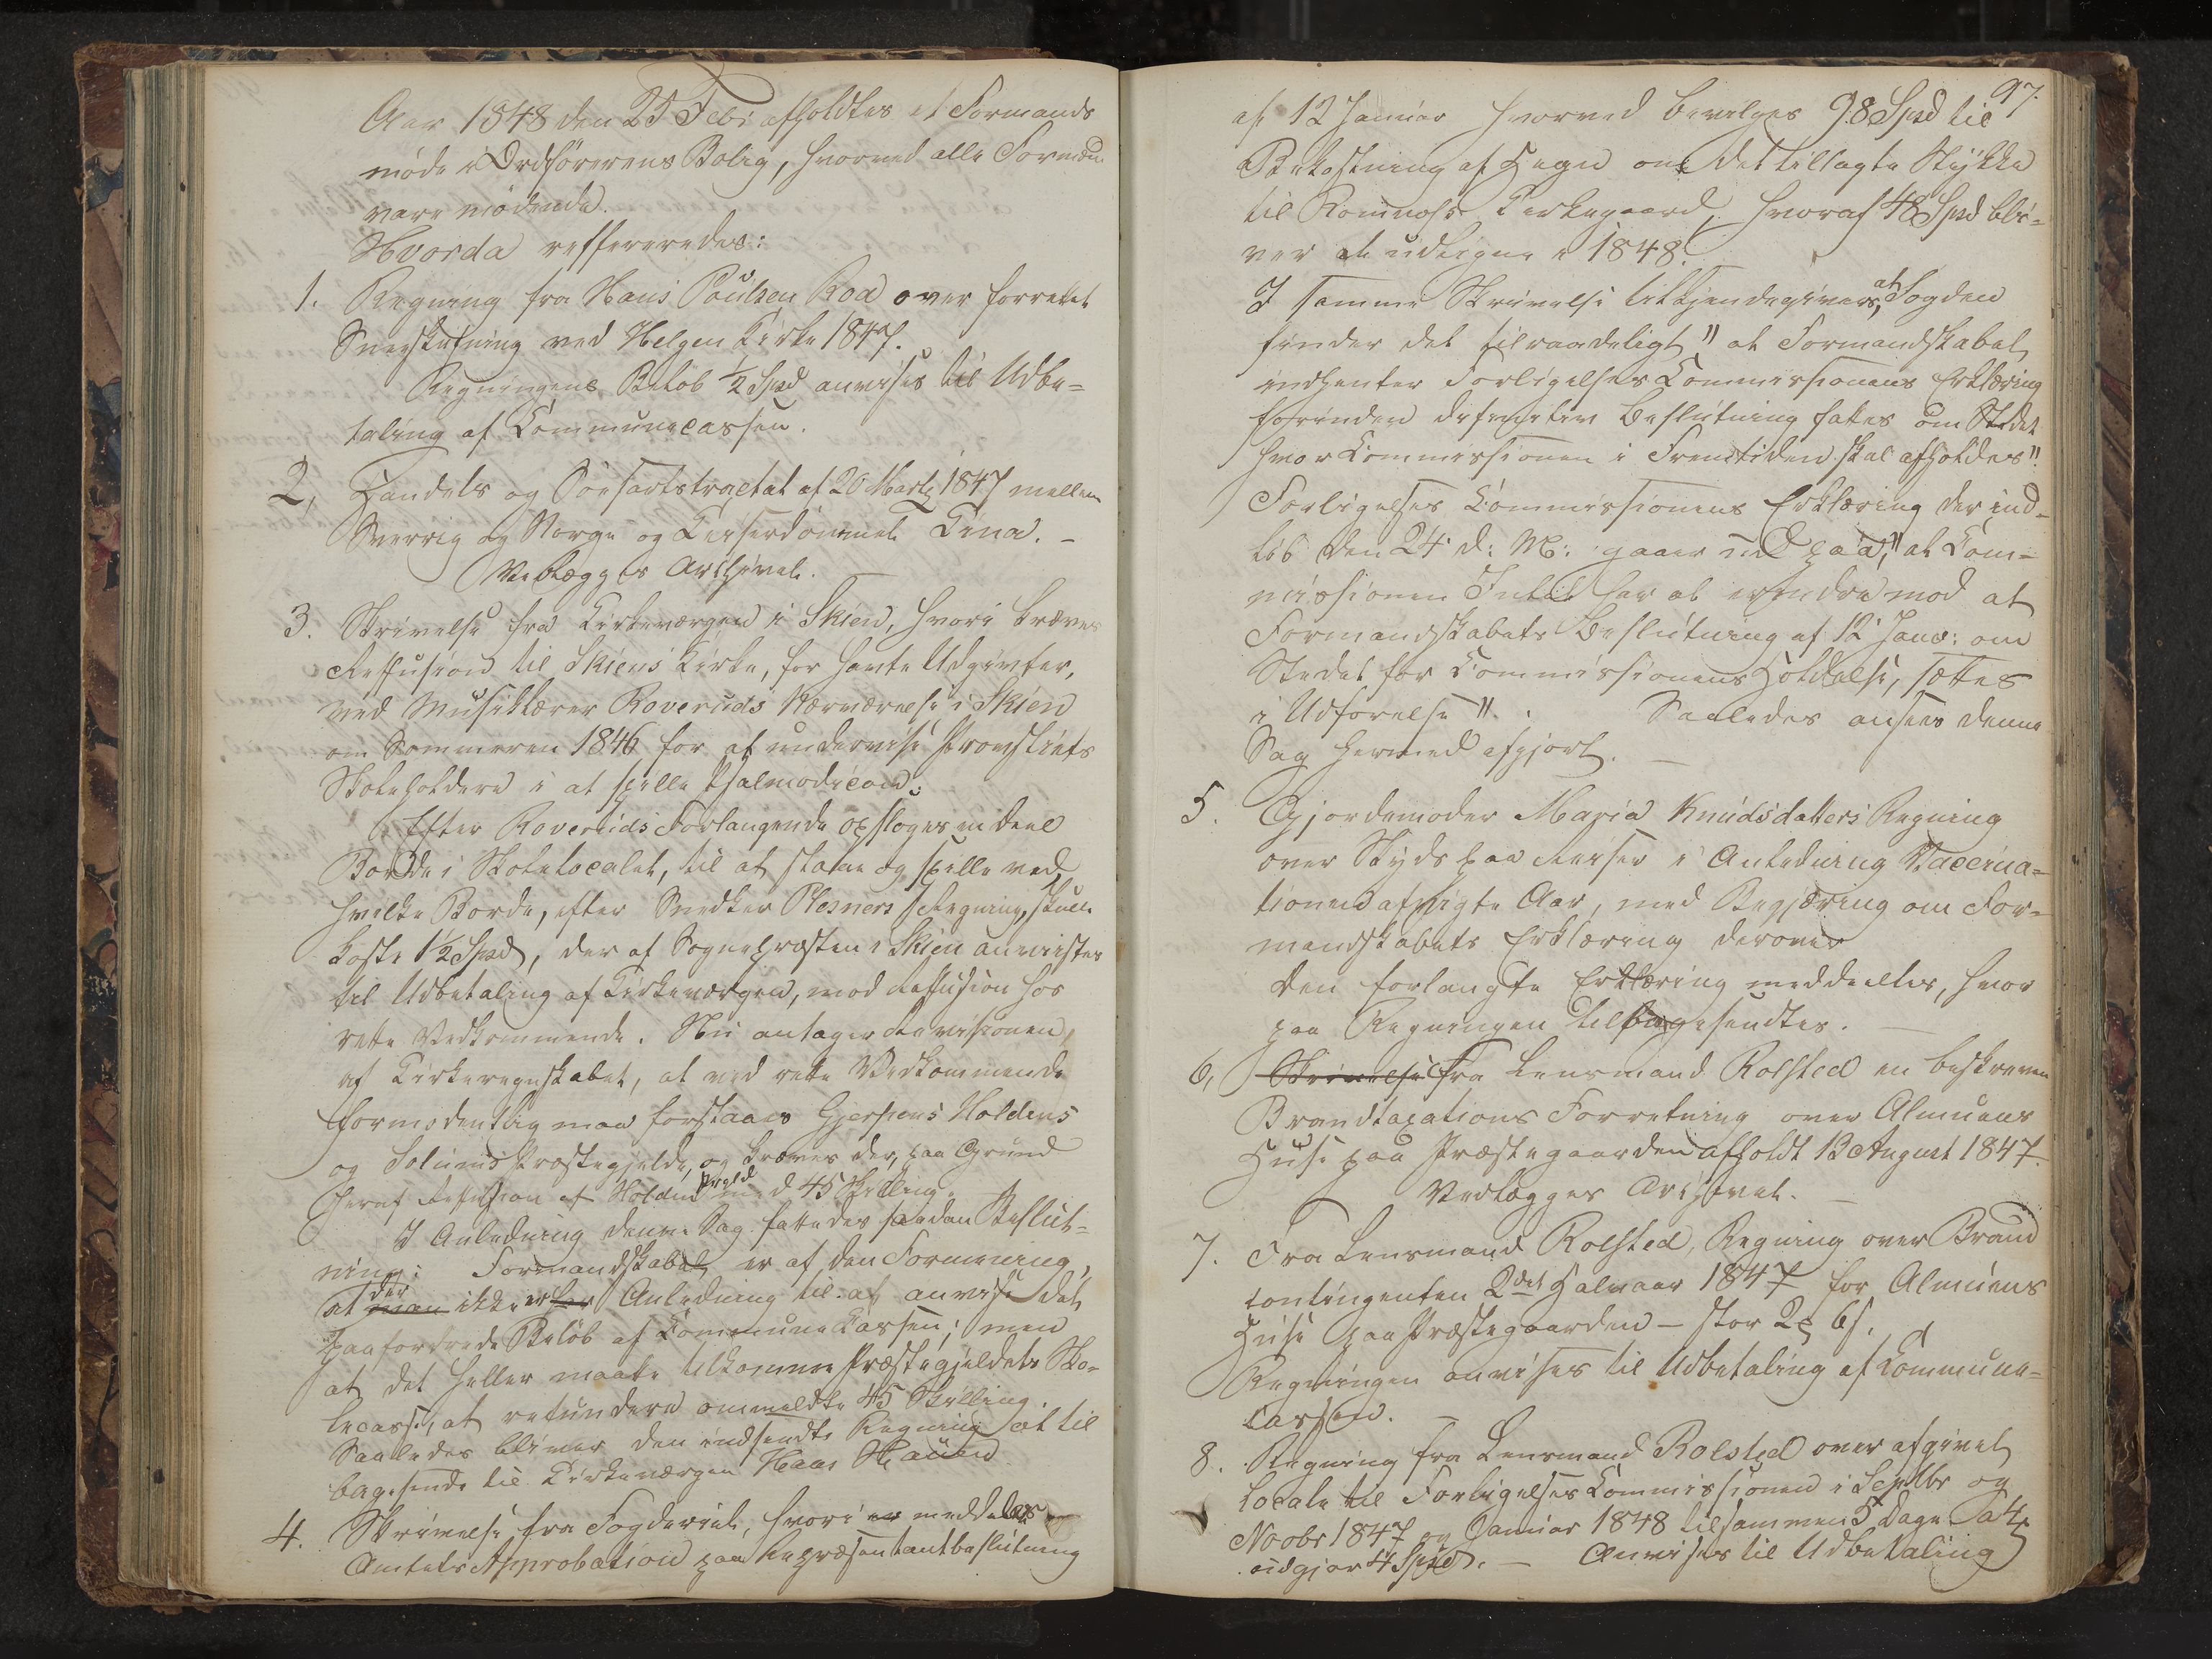 Aar 1848 den 25 Feb: afholdtes et Formands
møde i Ordførerens Bolig, hvorved alle Formænd
vare mødende.
Hvorda reffereredes:
1. Regning fra Hans Poulsen Roa over forrettet
Sneeskufning ved Helgen Kirke 1847.
Regningens Beløb ½ Spd anvises til Udbe=
taling af Kommunecassen.
2, Handels og Søefartstractat af 20 Marts 1847 mellem
Sverrig og Norge og Keiserdømmet Kina. –
Vedlægges Archivet.
3. Skrivelse fra Kirkeværgen i Skien, hvori kræves
Reffusion til Skiens Kirke, for havte Udgivter,
ved Musiklærer Roveruds Nærværelse i Skien
om Sommeren 1846 for at undervise Provstiets
Skoleholdere i at spille Psalmodicon.
Efter Roveruds Forlangende opsloges en Deel
Borde i Skolelocalet, til at staae og spille ved,
hvilke Borde, efter Snedker Plesners Regning skulle
koste 1½ Spd, der af Sognepræsten i Skien anvistes
til Udbetaling af Kirkeværgen, mod Reffusion hos
rette Vedkommende. Nu antager Revisionen
af Kirkeregnskabet, at ved rette Vedkommende
formodentlig maa forstaaes Gjerpens Holdens
og Solums Præstegjelde, og kræves der, paa Grund
heraf Reffusion af Holden Prgld med 45 Skilling.
I Anledning denne Sag fattedes saadan Beslut=
ning: Formandskabet er af den Formening,
at man der ikke er har Anledning til at anvise det
paafordrede Beløb af Kommune Kassen; men
at det heller maatte tilkomme Præstegjeldets Sko=
lecasse, at refundere ommeldte 45 Skilling.
Saaledes bliver den indsendte Regning at til
bagesende til Kirkeværgen Haas Skauen
4. Skrivelse fra Fogderiet, hvori er meddeles
Amtets Approbation paa Repræsentantbeslutning
97.
af 12 Januar hvorved bevilges 98 Spd til
Bekostning af Hegn om det tillagte Stykke
til Romnæs Kirkegaard, hvoraf 48 Spd bli=
ver at udligne i 1848.
I samme Skrivelse tilkjendegives, at Fogden
finder det tilraadeligt " at Formandskabet
indhenter Forligelses Commissionens Erklæring
forinden difinitiv Beslutning fattes om Stedet
hvor Commissionen i Fremtiden skal afholdes".
Forligelses Commissionens Erklæring der ind=
løb den 24 d: M: gaaer ud paa, "at Com=
missionen Intet har at erindre mod at
Formandskabets Beslutning af 12 Janr: om
Stedet for Commissionens Holdelse, sættes
i Udførelse". Saaledes ansees denne
Sag hermed afgjort. –
5. Gjordemoder Maria Knudsdatters Regning
over Skyds paa Reiser i Anledning Vaccina=
tionen afvigte Aar, med Begjæring om For=
mandskabets Erklæring derover
den forlangte Erklæring meddeeltes, hvor
paa Regningen tilbagesendtes. –
6, Skrivelse Fra Lensmand Rolsted en beskreven
Brandtaxations Forretning over Almuens
Huse paa Præstegaarden afholdt 13 August 1847.
Vedlægges Archivet. –
7. Fra Lensmand Rolsted, Regning over Brand
contingenten 2det Halvaar 1847 for Almuens
Huse paa Præstegaarden – stor
Regningen anvises til Udbetaling af Kommune=
cassen. –
8. Regning fra Lensmand Rolsted over afgivet
Locale til Forligelses Commissionen i Septbr og
Novbr 1847 og Januar 1848 tilsammen 5 Dage
udgjør 4 Spd. – Anvises til Udbetaling